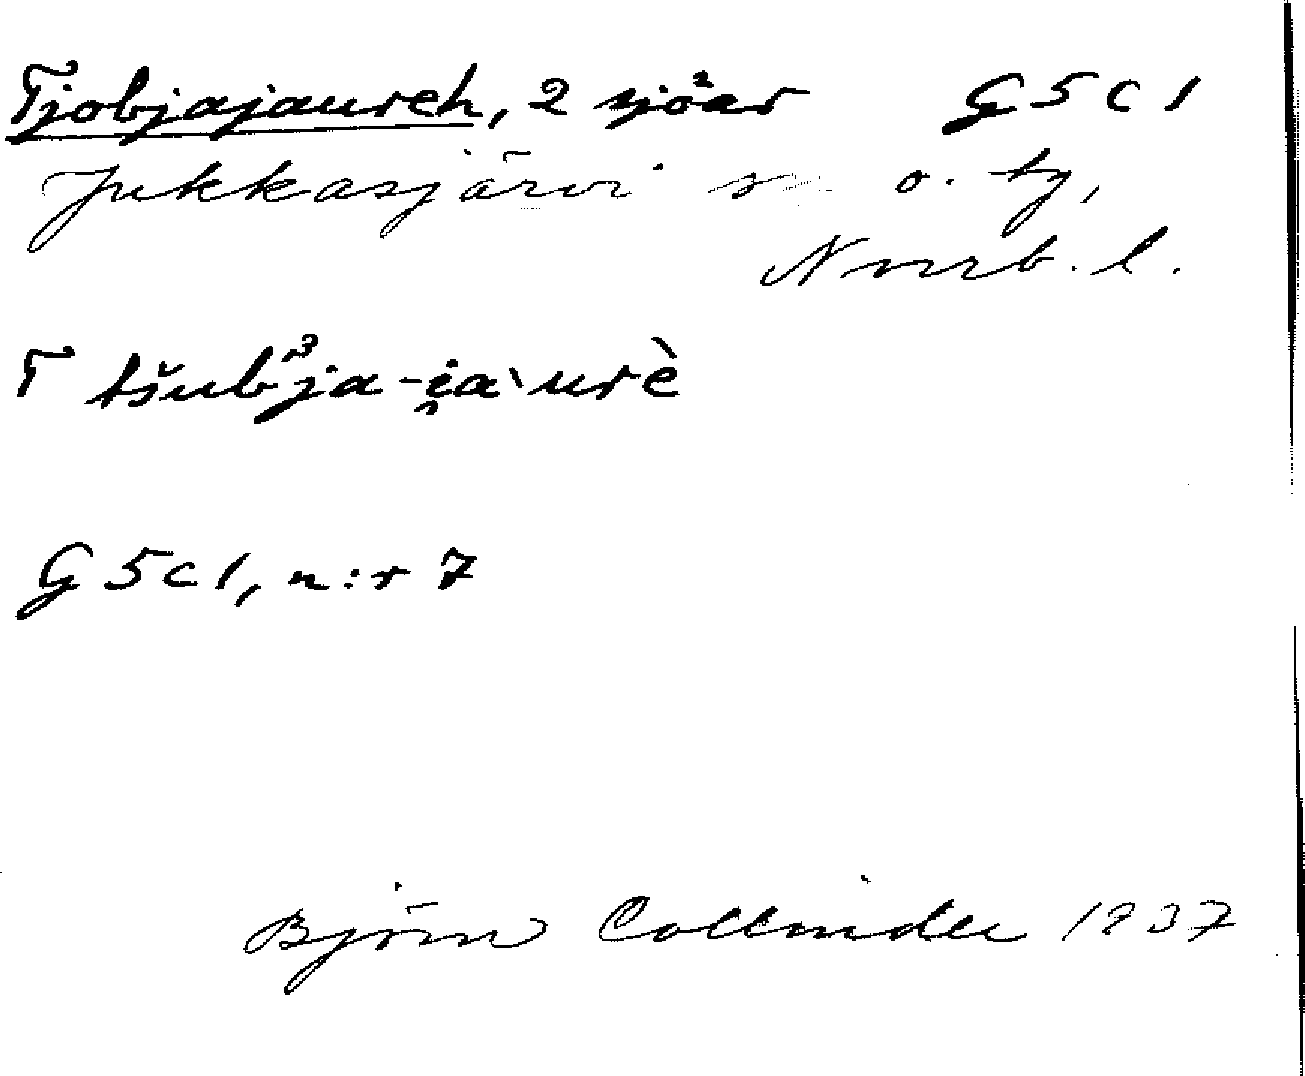 Tjobjajaureh, 2 sjöar G 5 C 1
Jukkasjärvi sn o. tg,
Norrb. l.
T tšub³ja-i̯a`urè
G 5 C 1, n:r 7
Björn Collinder 1937